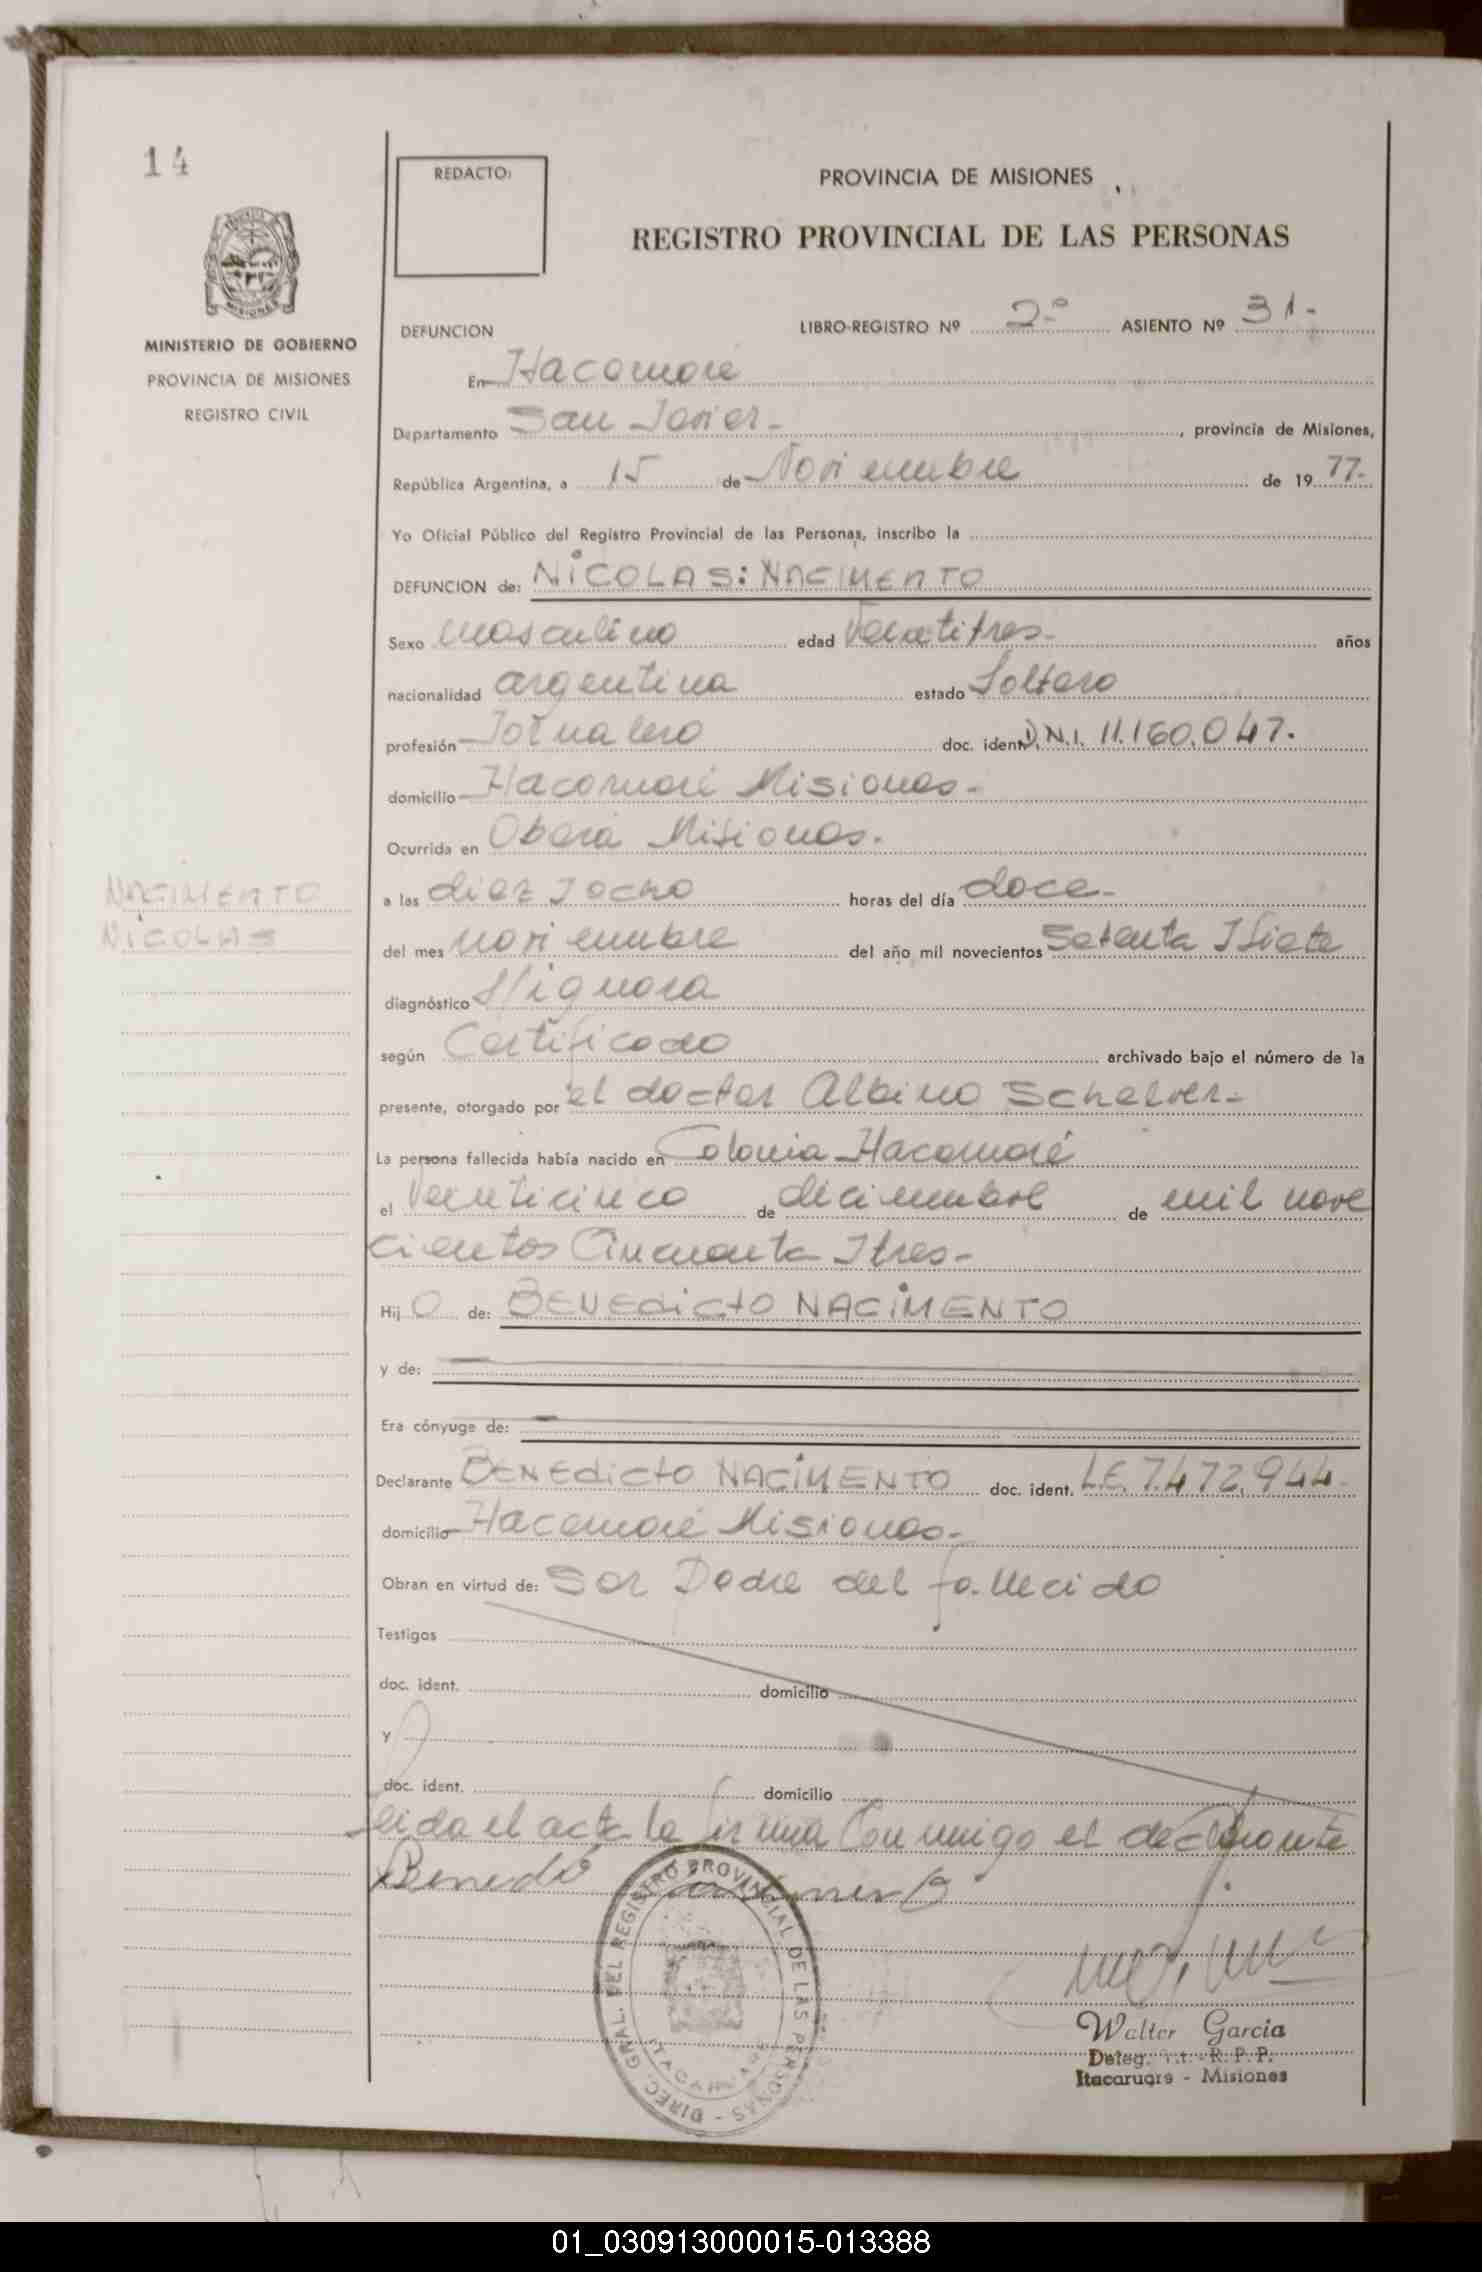 14
REDACTO:
PROVINCIA DE MISIONES
REGISTRO PROVINCIAL DE LAS PERSONAS
MINISTERIO DE GOBIERNO
PROVINCIA DE MISIONES
REGISTRO CIVIL
DEFUNCION LIBRO-REGISTRO Nº 2º ASIENTO Nº 31-
En Itacaruaré
Departamento San Javier- , provincia de Misiones,
República Argentina, a 15 de Noviembre de 19 77-
Yo Oficial Público del Registro Provincial de las Personas, inscribo la
DEFUNCION de: NICOLAS: NACIMENTO
Sexo masculino edad Veintitres- años
nacionalidad argentina estado Soltero
profesión Jornalero doc. ident. D.N.I. 11.160.047.
domicilio Itacaruaré Misiones-
Ocurrida en Oberá Misiones.
NACIMENTO
NICOLAS
a las diez y ocho horas del día doce-
del mes noviembre del año mil novecientos Setenta y Siete
diagnóstico
según Certificado archivado bajo el número de la
presente, otorgado por el doctor Albino Schelver-
La persona fallecida había nacido en Colonia Itacaruaré
el Veinticinco de diciembre de mil nove
cientos Cincuenta y tres-
Hij o de: BENEdicto NACIMENTO
y de:
Era cónyuge de:
Declarante BENEdicto NACIMENTO doc. ident. L.E. 7.472.944-
domicilio Itacaruaré Misiones-
Obran en virtud de: Ser Padre del fallecido
Testigos
doc. ident. domicilio
y
doc. ident. domicilio
Leida el acta la firma Conmigo el declarante
DIREC. GRAL. DEL REGISTRO PROVINCIAL DE LAS PERSONAS -
Walter Garcia
Deleg. Int. R. P. P.
Itacaruare - Misiones
01_030913000015-013388